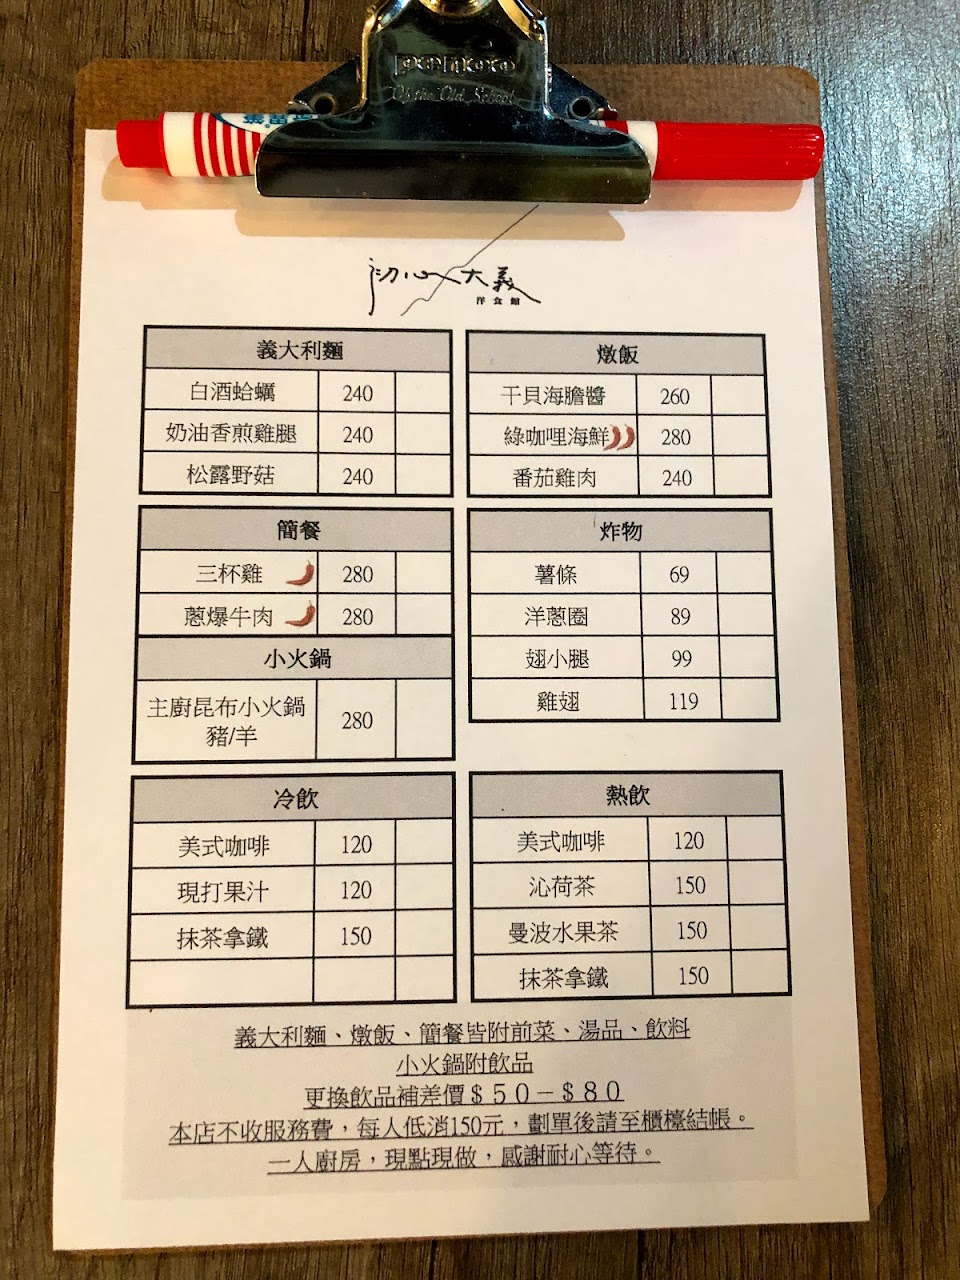 Of the Old School
初心大義
洋食館
義大利麵
白酒蛤蠣 240
奶油香煎雞腿 240
松露野菇 240
燉飯
干貝海膽醬 260
綠咖哩海鮮 280
番茄雞肉 240
簡餐
三杯雞 280
蔥爆牛肉 280
小火鍋
主廚昆布小火鍋
豬/羊 280
炸物
薯條 69
洋蔥圈 89
翅小腿 99
雞翅 119
冷飲
美式咖啡 120
現打果汁 120
抹茶拿鐵 150
熱飲
美式咖啡 120
沁荷茶 150
曼波水果茶 150
抹茶拿鐵 150
義大利麵、燉飯、簡餐皆附前菜、湯品、飲料
小火鍋附飲品
更換飲品補差價＄５０－＄８０
本店不收服務費，每人低消150元，劃單後請至櫃檯結帳。
一人廚房，現點現做，感謝耐心等待。